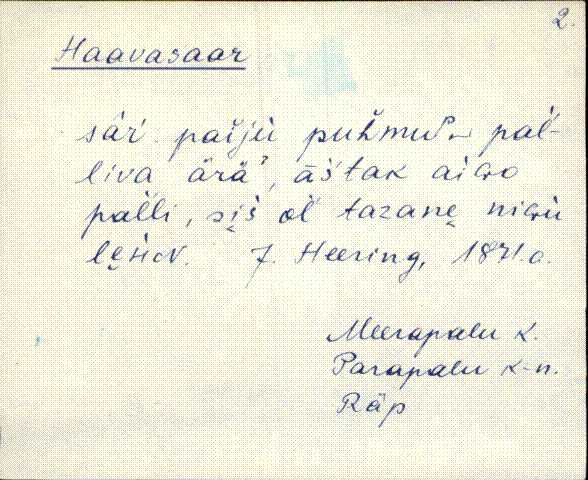 2.
Haavasaar
sàr paĭjù puȟmuᵉ pàl̆-
liva ärä', āštak aiɢo
pal̆li, si̮š ol̆ tazane̮ niɢù
J. Heering, 1871.a.
Meerapalu k.
Parapalu k-n.
Räp